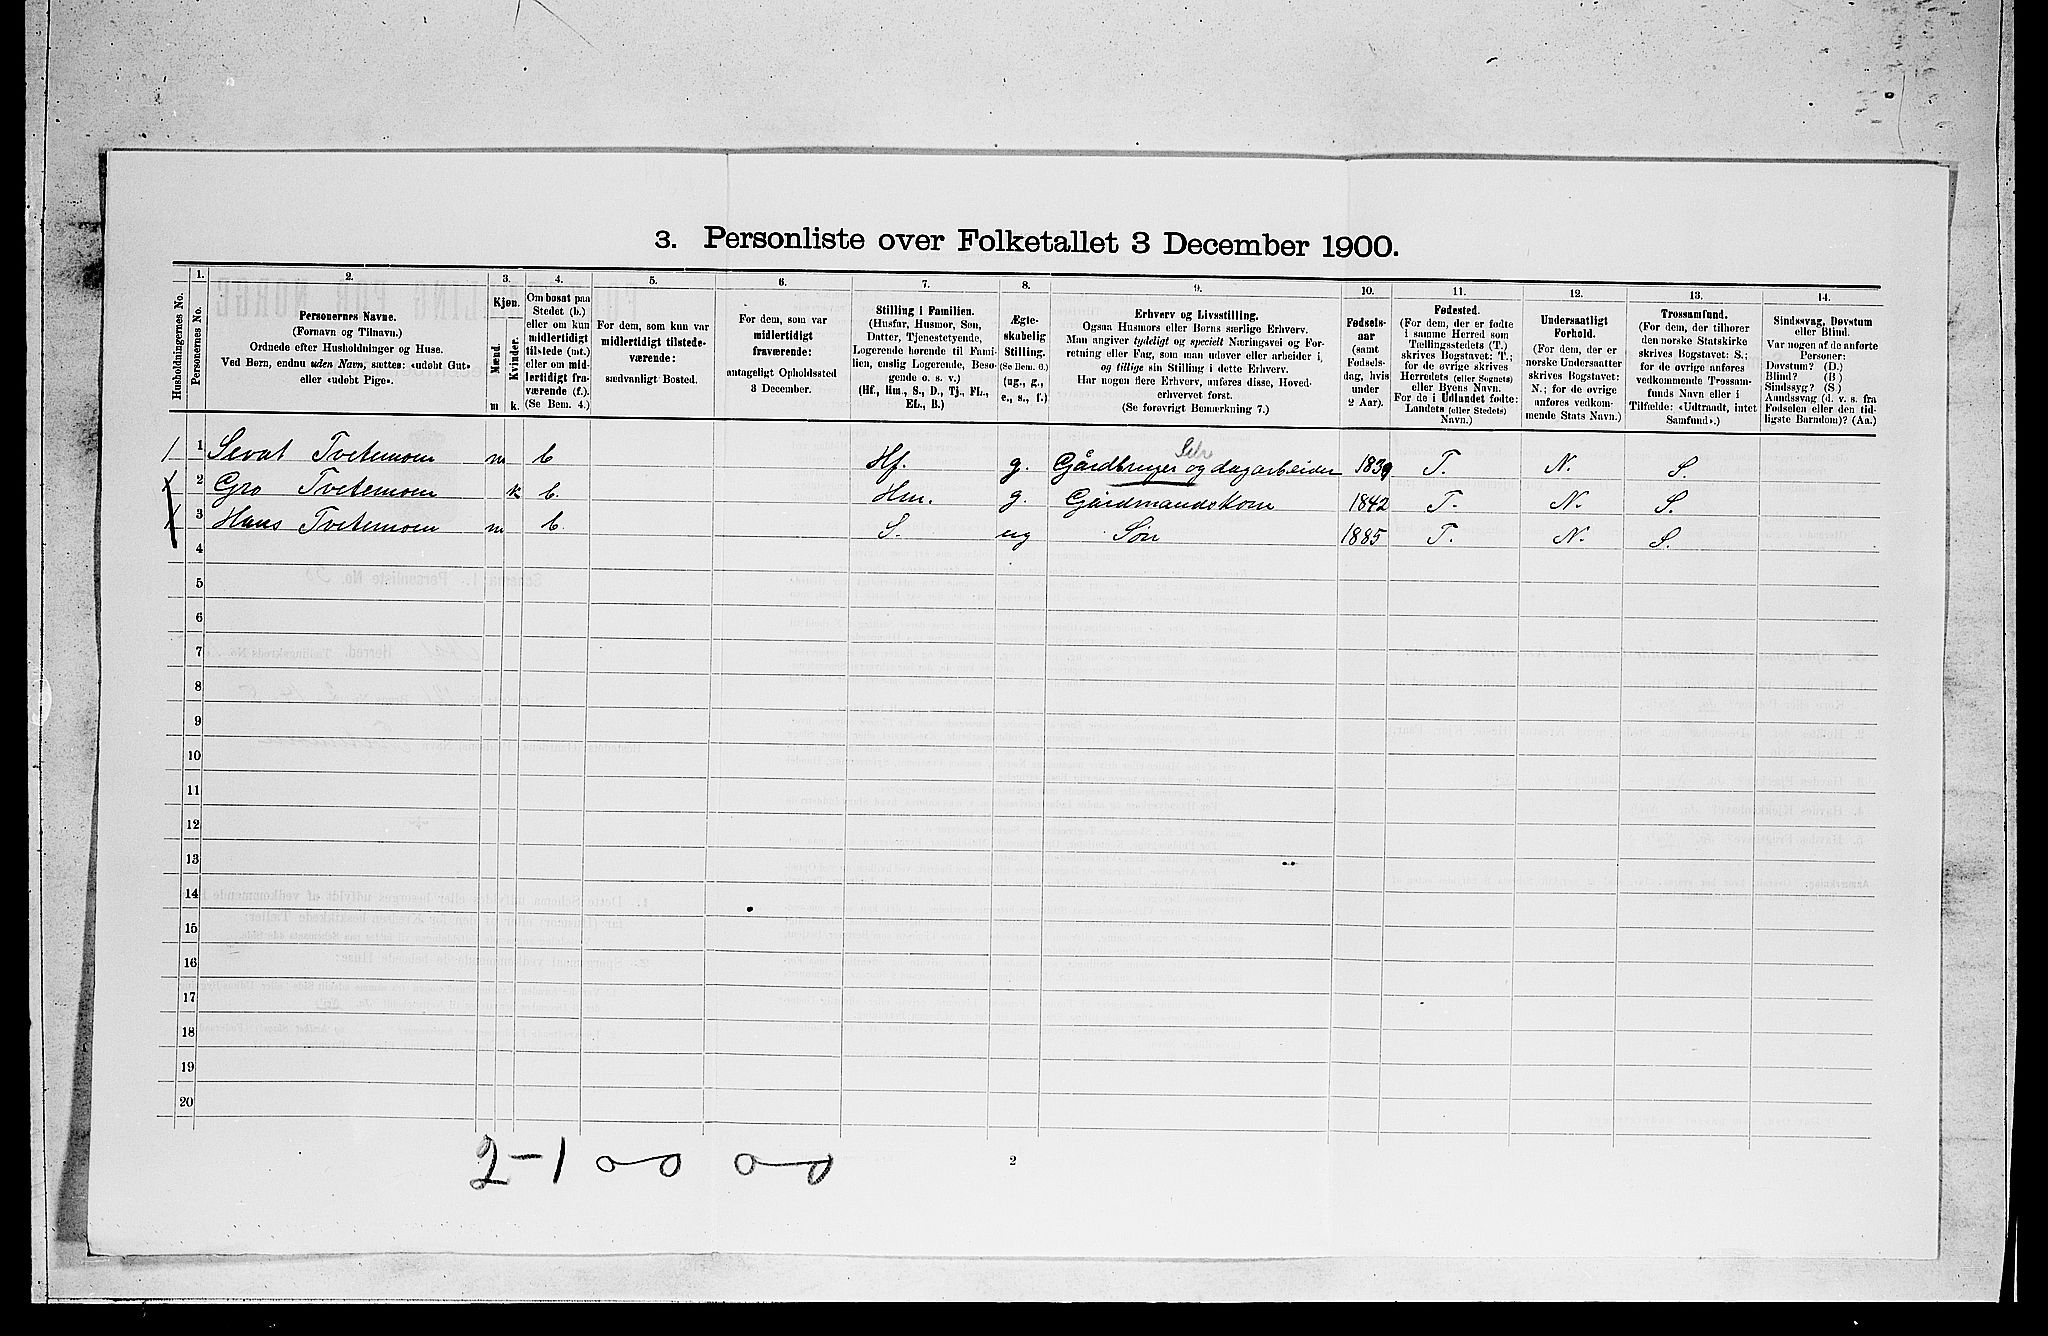 3. Personliste over Folketallet 3 December 1900.
Husholdningernes No.
1. Personernes No.
2. Personernes Navne.
(Fornavn og Tilnavn.)
Ordnede efter Husholdninger og Huse.
Ved Børn, endnu uden Navn, sættes: «udøbt Gut»
eller «udøbt Pige».
3. Kjøn.
Mænd. m
Kvinder. k.
4. Om bosat paa
Stedet (b.)
eller om kun
midlertidigt
tilstede (mt.)
eller om mid-
lertidigt fra-
værende (f.).
(Se Bem. 4.)
5. For dem, som kun var
midlertidigt tilstede-
værende:
sædvanligt Bosted.
6. For dem, som var
midlertidigt
fraværende:
antageligt Opholdssted
3 December.
7. Stilling i Familien.
(Husfar, Husmor, Søn,
Datter, Tjenestetyende,
Logerende hørende til Fami-
lien, enslig Logerende, Beso-
gende o. s. v.)
(Hf., Hm., S., D., Tj., FL.,
EL., B.)
8. Ægte-
skabelig
Stilling.
(Se Bem. 6.)
(ug., g.,
e., s., f.)
9. Erhverv og Livsstilling.
Ogsaa Husmors eller Børns særlige Erhverv.
Man angiver tydeligt og specielt Næringsvei og For-
retning eller Fag, som man udøver eller arbeider i,
og tillige sin Stilling i dette Erhverv.
Har nogen flere Erhverv, anføres disse, Hoved-
erhvervet først.
(Se forøvrigt Bemærkning 7.)
10. Fødsels-
aar
(samt
Fødsels-
dag, hvis
under
2 Aar).
11. Fødested.
(For dem, der er fødte
i samme Herred som
Tællingsstedets (T.)
skrives Bogstavet: T.;
for de øvrige skrives
Herredets (eller Sognets)
eller Byens Navn.
For de i Udlandet fødte:
Landets (eller Stedets)
Navn.)
12. Undersaatligt
Forhold.
(For dem, der er
norske Undersaatter
skrives Bogstavet:
N.; for de øvrige
anføres vedkom-
mende Stats Navn.)
13. Trossamfund.
(For dem, der tilhører
den norske Statskirke
skrives Bogstavet: S.;
for de øvrige anføres
vedkommende Trossam-
funds Navn eller i
Tilfælde: «Udtraadt, intet
Samfund».)
14. Sindssvag, Døvstum
eller Blind.
Var nogen af de anførte
Personer:
Døvstum? (D.)
Blind? (B)
Sindssyg? (S)
Aandssvag (d. v. s. fra
Fødselen eller den tid-
ligste Barndom)? (Aa.)
1 1 Sevat Tvetemoen m b Hf. g. Gårdbruger Selv og dagarbeider 1839 T. N. S.
2 Gro Tvetemoen k b. Hm. g. Gårdmandskone 1842 T. N. S.
3 Hans Tvetemoen m b. S. ug Søn 1885 T. N. S.
4
5
6
7
8
9
10
11
12
13
14
15
16
17
18
19
20
2-1 00 00
2